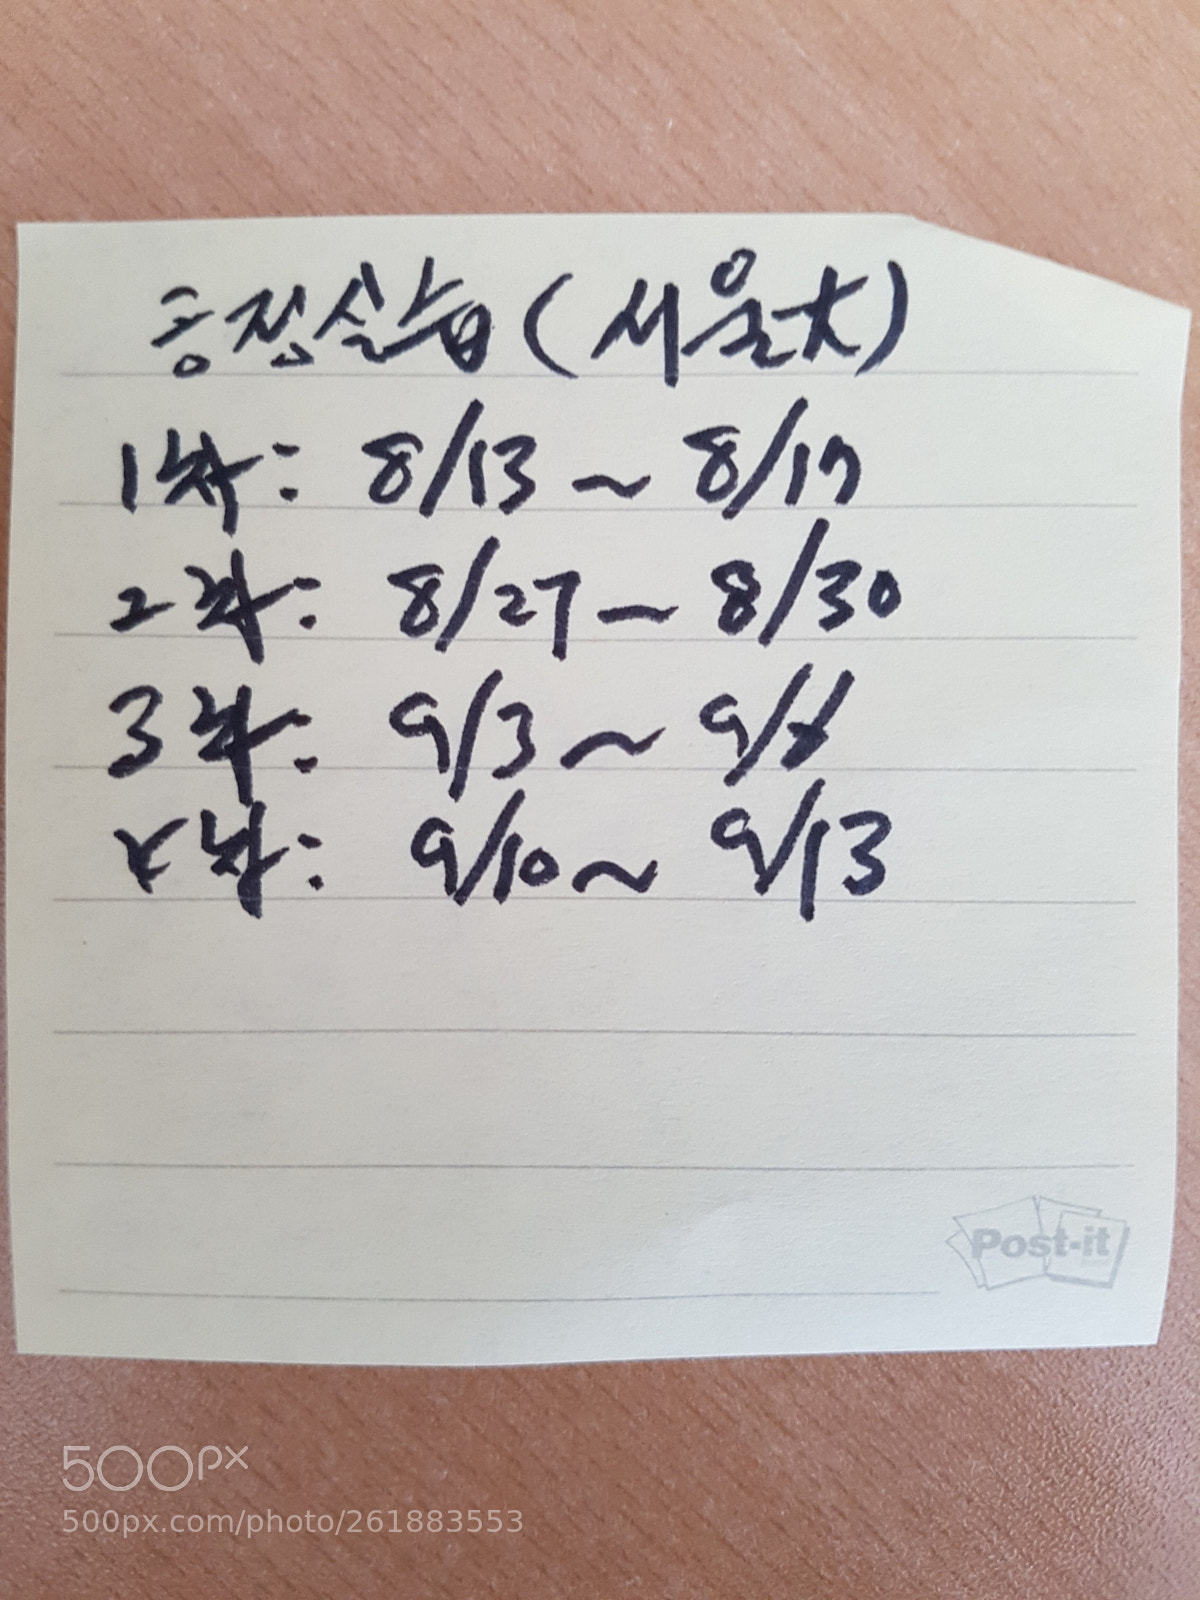 용접실습(서울大)
1차: 8/13 ~ 8/17
2차: 8/27 ~ 8/30
3차: 9/3 ~ 9/6
4차: 9/10 ~ 9/13
Post-it
500px
500px.com/photo/261883553